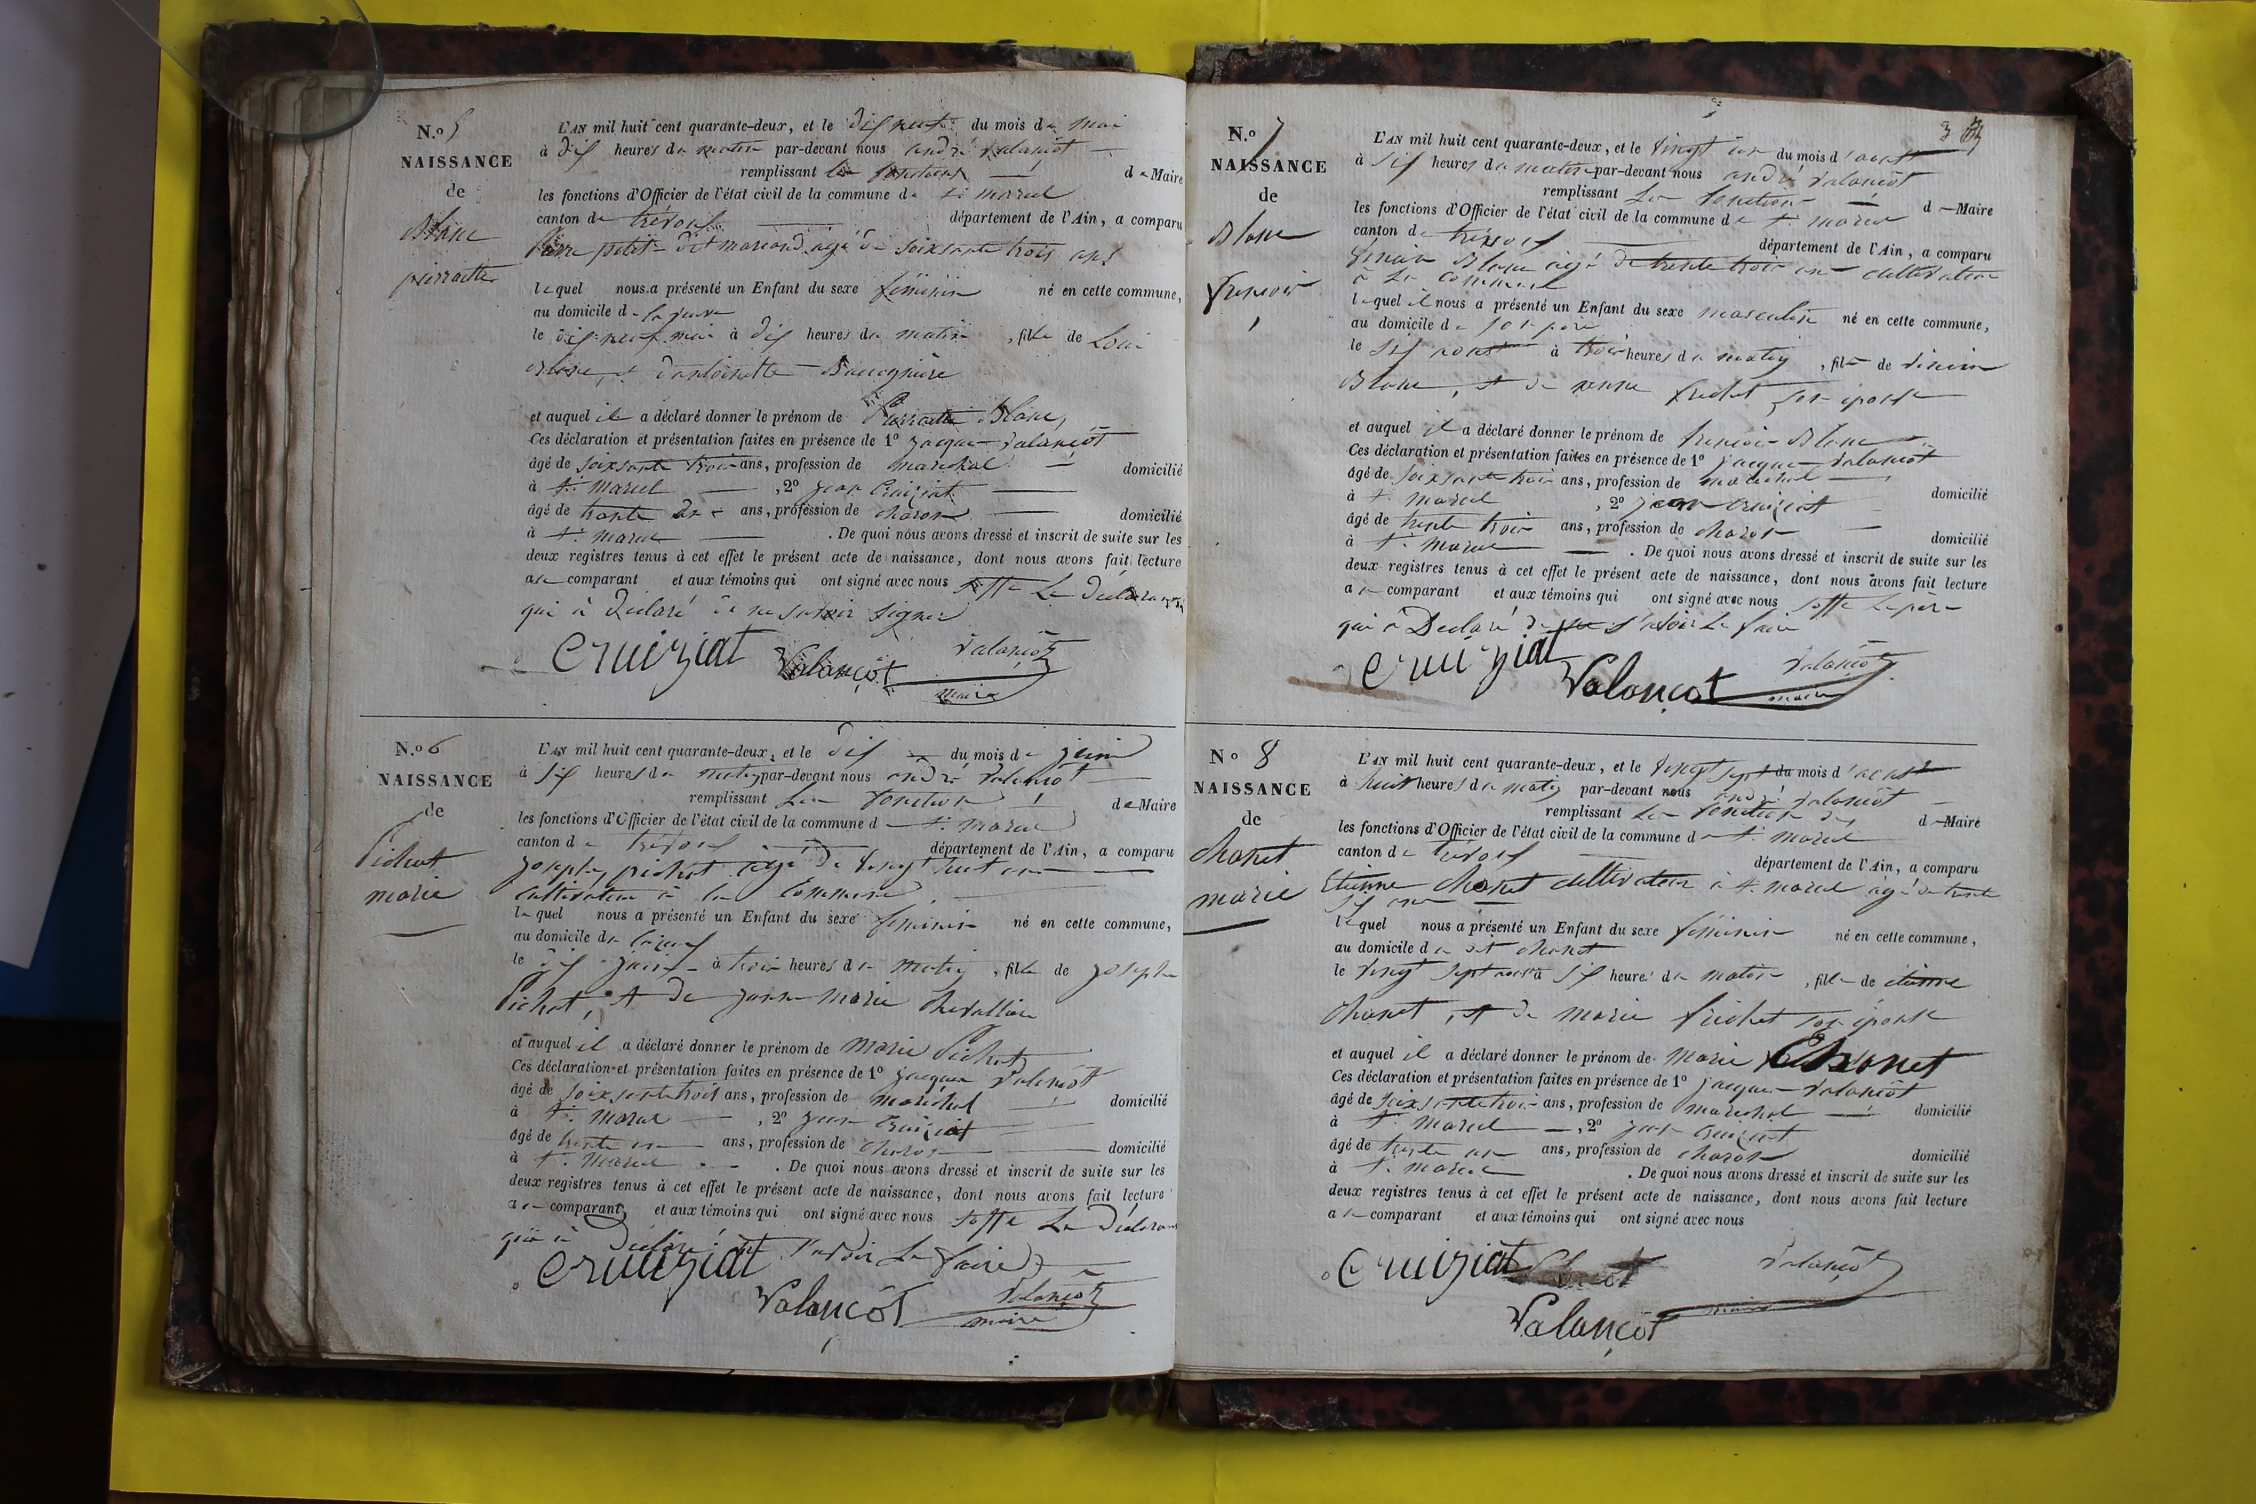 N.o 5
NAISSANCE
de
Blanc
pierraette
L'AN mil huit cent quarante-deux, et le dif neuf du mois de mai
à dif heures du matin par-devant nous andré valançot
remplissant les fonctions de Maire
les fonctions d'Officier de l'état civil de la commune de st marcel
canton de trévouf département de l'Ain, a comparu
pierre petit dit marcand agé de soixsante trois ans
lequel nous a présenté un Enfant du sexe féminin né en cette commune,
au domicile de
le dif neuf mai à dif heures du matin, fille de Loui
Blanc, et dantoinette
et auquel il a déclaré donner le prénom de pierraette Blanc
Ces déclaration et présentation faites en présence de 1o jacque valançot
âgé de soixsante trois ans, profession de marechal domicilié
à st marcel, 2o jean Cruiziat
âgé de trante ans, profession de charon domicilié
à st marcel. De quoi nous avons dressé et inscrit de suite sur les
deux registres tenus à cet effet le présent acte de naissance, dont nous avons fait lecture
au comparant et aux témoins qui ont signé avec nous soffe Le Déclarant
qui à Déclaré de ne savoir signer
Cruiziat Valançot valançot
maire
N.o 6
NAISSANCE
de
Pichat
marie
L'AN mil huit cent quarante-deux, et le dif du mois de juin
à sif heures du matin par-devant nous andré valançot
remplissant Les fonctions de Maire
les fonctions d'Officier de l'état civil de la commune d st marcel
canton de trévouf département de l'Ain, a comparu
joseph pichat agé de vingt huit ans
cultivateur à La Commune
lequel nous a présenté un Enfant du sexe féminin né en cette commune,
au domicile de
le dif juin à trois heures du matin, fille de joseph
Pichat, et de janne marie chevallier
et auquel il a déclaré donner le prénom de marie Pichat
Ces déclaration et présentation faites en présence de 1o jacque valançot
âgé de soixsante trois ans, profession de maréchal domicilié
à st marcel, 2o jean Cruiziat
âgé de trente ans, profession de charon domicilié
à st marcel. De quoi nous avons dressé et inscrit de suite sur les
deux registres tenus à cet effet le présent acte de naissance, dont nous avons fait lecture
au comparant et aux témoins qui ont signé avec nous soffe Le Déclarant
qui à Déclaré savoir Le faire
Cruiziat
Valançot valançot
maire
3
N.o 7
NAISSANCE
de
Blanc
françois
L'AN mil huit cent quarante-deux, et le vingt un du mois d'aoust
à sif heures du matin par-devant nous andré valançot
remplissant Les fonctions d Maire
les fonctions d'Officier de l'état civil de la commune de st marcel
canton de trévouf département de l'Ain, a comparu
Blanc agé de trente trois ans cultivateur
à La commune
lequel il nous a présenté un Enfant du sexe masculin né en cette commune,
au domicile de son père
le aoust à trois heures du matin, fils de
Blanc, et de frichet son épouse
et auquel il a déclaré donner le prénom de françois Blanc
Ces déclaration et présentation faites en présence de 1o jacque valançot
âgé de soixsante trois ans, profession de maréchal domicilié
à st marcel, 2o jean cruiziat
âgé de trente trois ans, profession de charon domicilié
à st marcel. De quoi nous avons dressé et inscrit de suite sur les
deux registres tenus à cet effet le présent acte de naissance, dont nous avons fait lecture
au comparant et aux témoins qui ont signé avec nous soffe Le père
qui à Déclaré de ne savoir Le faire
Cruiziat Valançot valançot
maire
No 8
NAISSANCE
de
chanet
marie
L'AN mil huit cent quarante-deux, et le vingt sept du mois d'aoust
à huit heures du matin par-devant nous andré valançot
remplissant Les fonctions d Maire
les fonctions d'Officier de l'état civil de la commune de st marcel
canton de trévouf département de l'Ain, a comparu
Etienne chanet cultivateur à st marcel âgé de trente
sif ans
lequel nous a présenté un Enfant du sexe féminin né en cette commune,
au domicile du dit chanet
le vingt sept aoust à sif heures du matin, fille de étienne
chanet, et de marie frichet son épouse
et auquel il a déclaré donner le prénom de marie Chanet
Ces déclaration et présentation faites en présence de 1o jacque valançot
âgé de soixsante trois ans, profession de maréchal domicilié
à st marcel, 2o jean cruiziat
âgé de trente ans, profession de charon domicilié
à st marcel. De quoi nous avons dressé et inscrit de suite sur les
deux registres tenus à cet effet le présent acte de naissance, dont nous avons fait lecture
au comparant et aux témoins qui ont signé avec nous
Cruiziat valançot
maire
Valançot